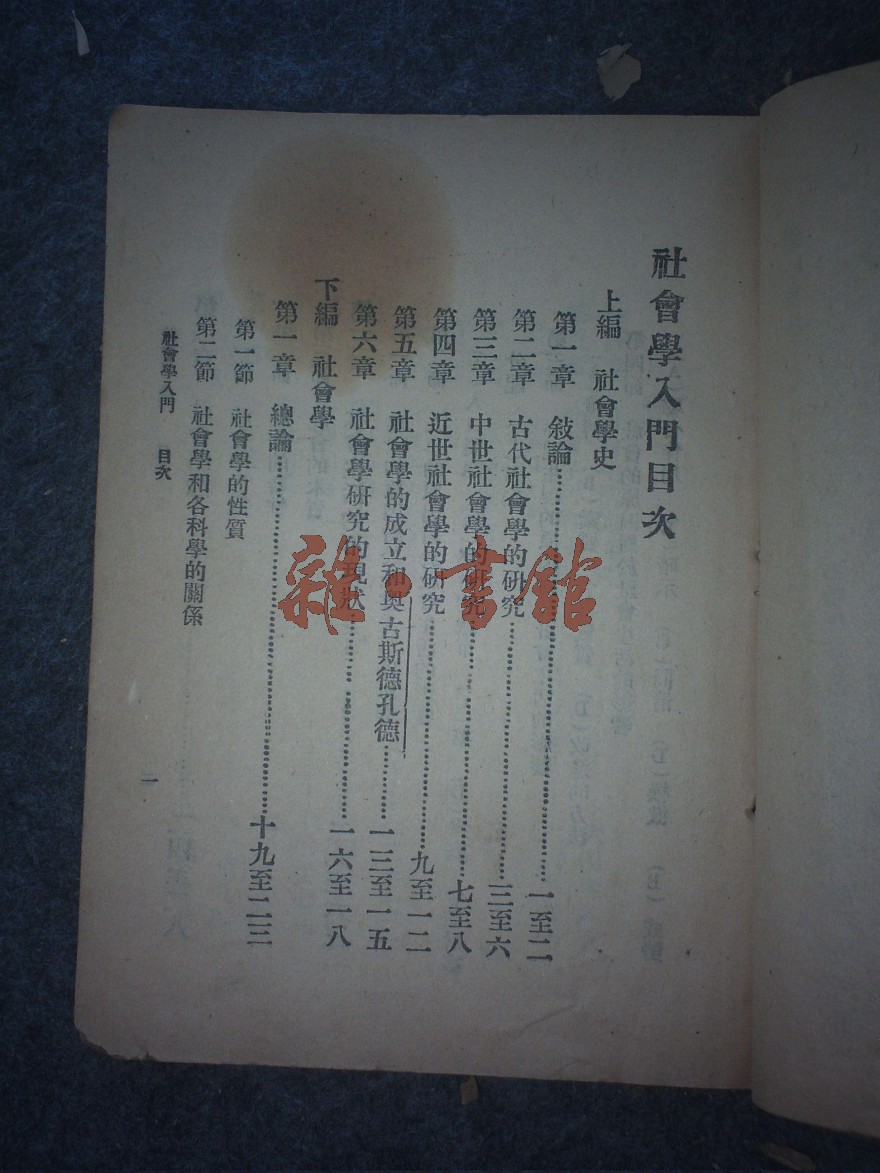 社會學入門目次
上編 社會學史
第一章 敍論……一至二
第二章 古代社會學的研究……三至六
第三章 中世社會學的研究……七至八
第四章 近世社會學的研究……九至一二
第五章 社會學的成立和奧古斯德孔德……一三至一五
第六章 社會學研究的現狀……一六至一八
下編 社會學
第一章 總論……十九至二三
第一節 社會學的性質
第二節 社會學和各科學的關係
社會學入門 目次
一
雜·書館